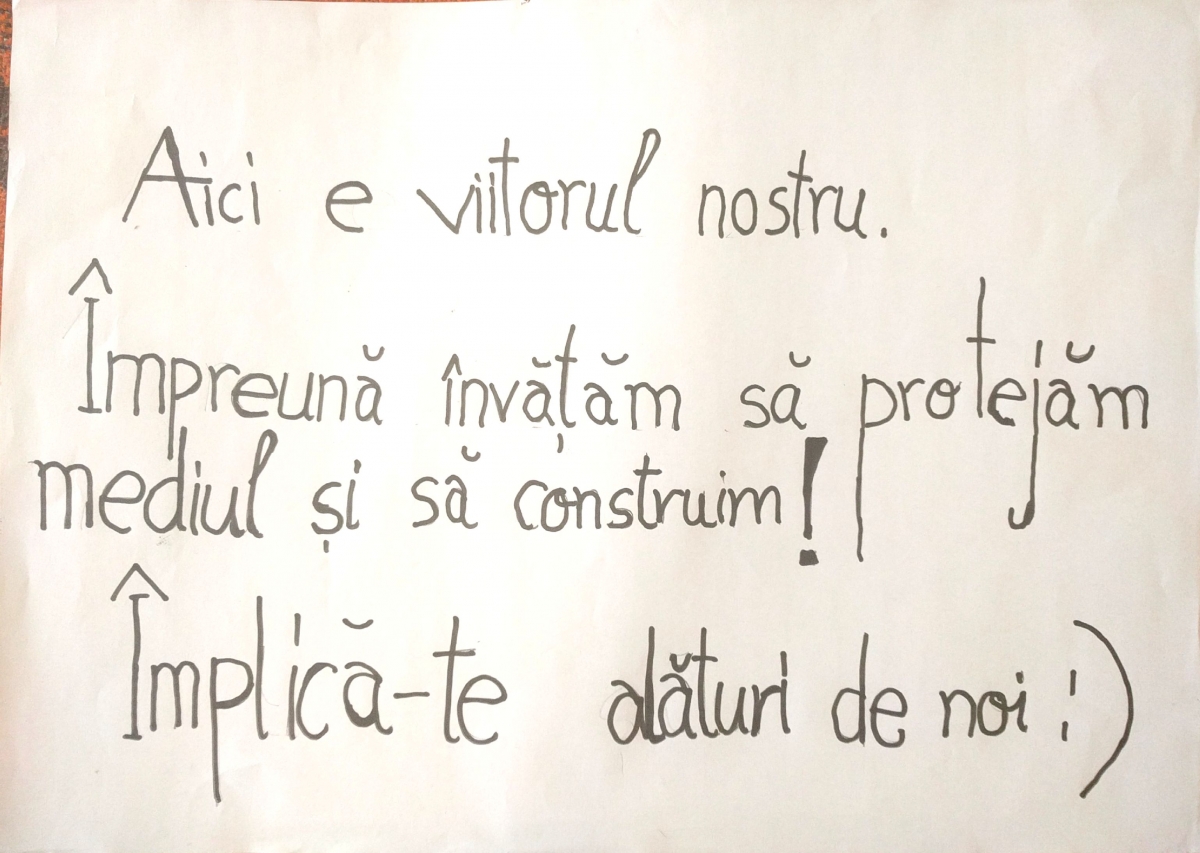 Aici e viitorul nostru.
Împreună învățăm să protejăm
mediul și să construim!
Implică-te alături de noi :)